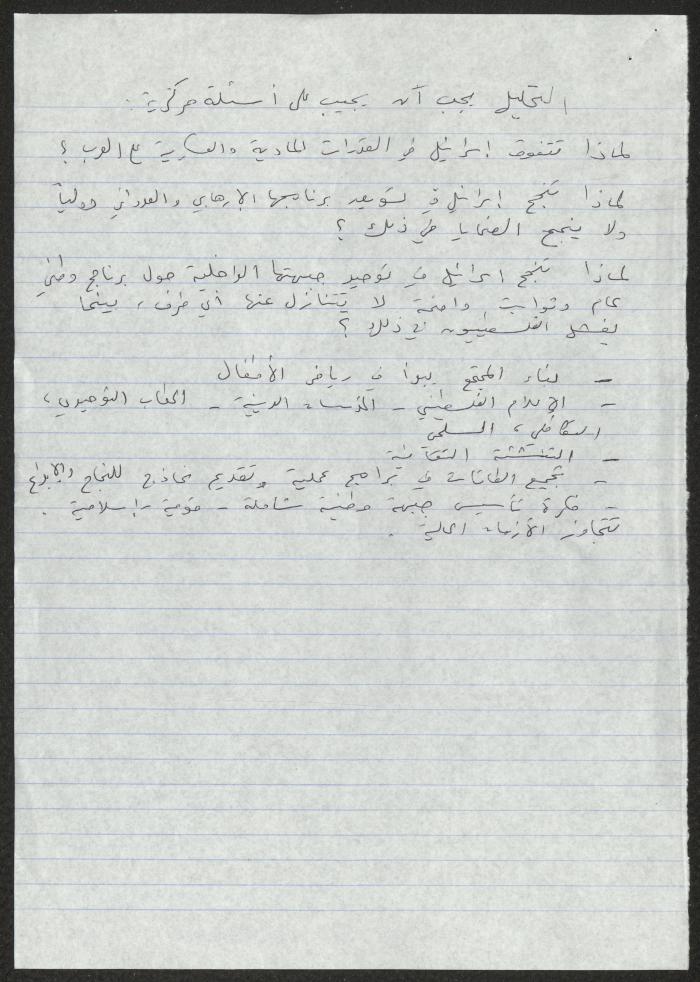 التحليل يجب أن يجيب على أسئلة مركزية :
لماذا تتفوق إسرائيل في القدرات المادية والعسكرية على العرب ؟
لماذا تنجح إسرائيل في تسويق برنامجها الإرهابي والعدواني دولياً
ولا ينجح الضحايا في ذلك ؟
لماذا تنجح اسرائيل في توحيد جبهتها الداخلية حول برنامج وطني
عام وثوابت واضحة لا يتنازل عنها أي طرف ، بينما
يفشل الفلسطينيون في ذلك ؟
- بناء المجتمع يبدأ في رياض الأطفال
- الإعلام الفلسطيني - المؤسسات الدينية - الخطاب التوحيدي ،
التكافلي ، السلمي
- التنشئة الثقافية
- تجميع الطاقات في برامج عملية وتقديم نماذج للنجاح والإبداع
- فكرة تأسيس جبهة وطنية شاملة - قومية - إسلامية .
تتجاوز الأزمات الحالية .